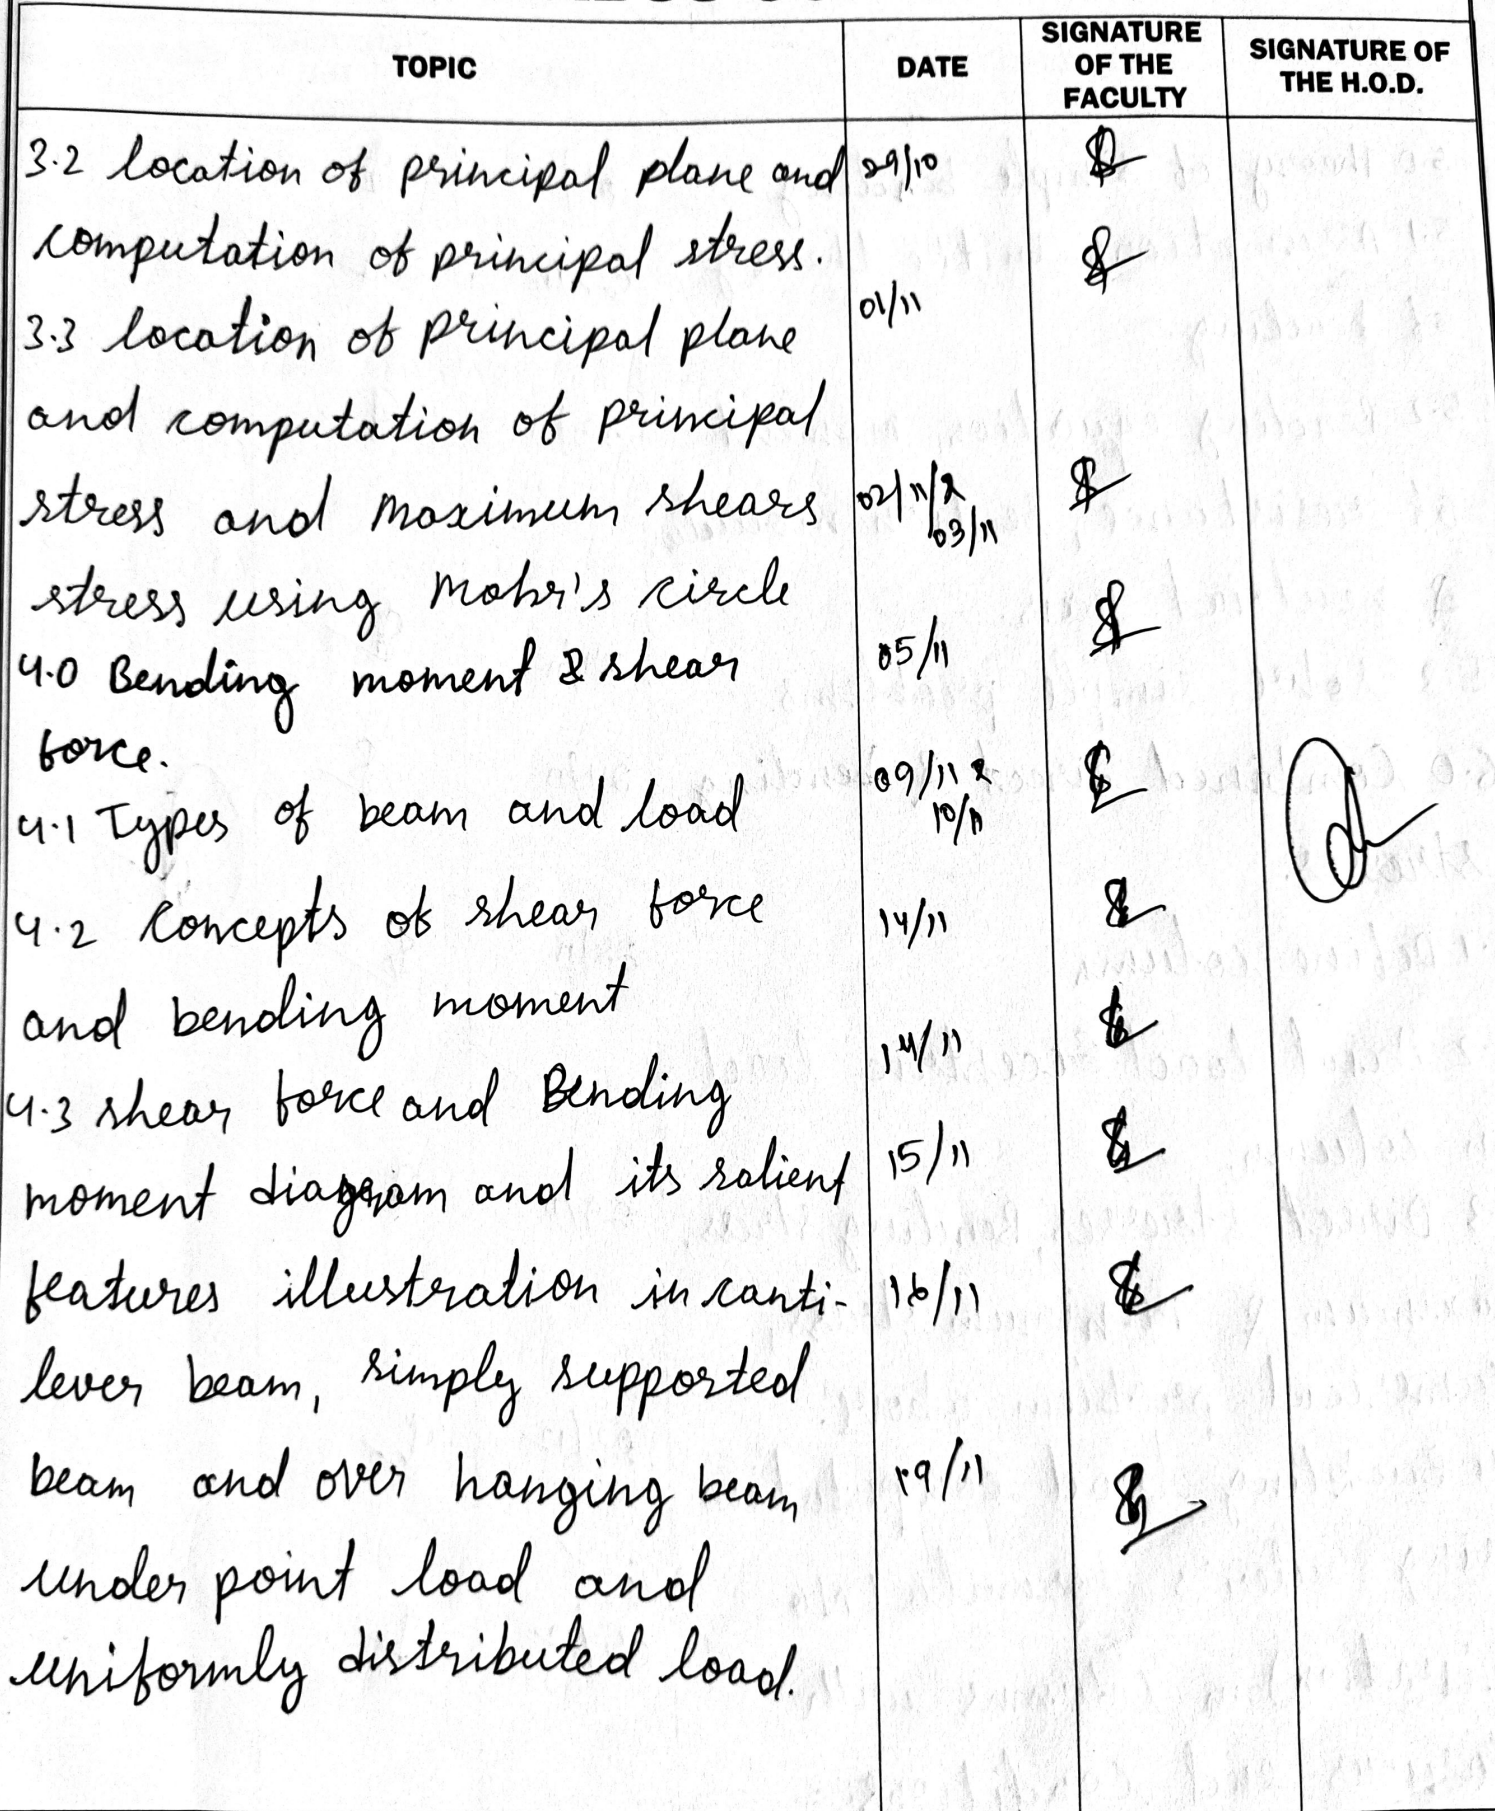 TOPIC DATE SIGNATURE OF THE FACULTY SIGNATURE OF THE H.O.D.
3.2 location of principal plane and 29/10
computation of principal stress.
01/11
3.3 location of principal plane
and computation of principal
stress and maximum shears 02/11 &
03/11
stress using Mohr's circle
4.0 Bending moment & shear 05/11
force.
09/11 &
4.1 Types of beam and load 10/11
4.2 Concepts of shear force 14/11
and bending moment
14/11
4.3 shear force and Bending
moment diagram and its salient 15/11
features illustration in canti- 16/11
lever beam, simply supported
beam and over hanging beam 19/11
under point load and
uniformly distributed load.